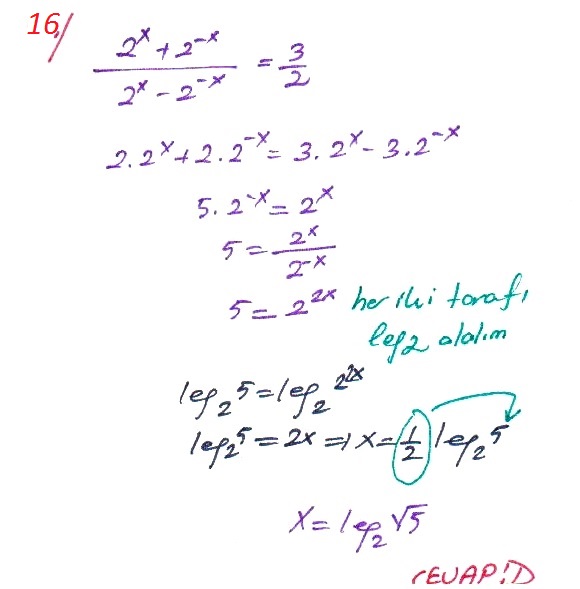 16/
(2^x + 2^-x)/(2^x - 2^-x) = 3/2
2.2^x + 2.2^-x = 3.2^x - 3.2^-x
5.2^-x = 2^x
5 = 2^x/2^-x
5 = 2^2x her iki tarafı
log2 alalım
log₂5 = log₂2^2x
log₂5 = 2x ⇒ x = 1/2 log₂5
x = log₂√5
CEVAP:D